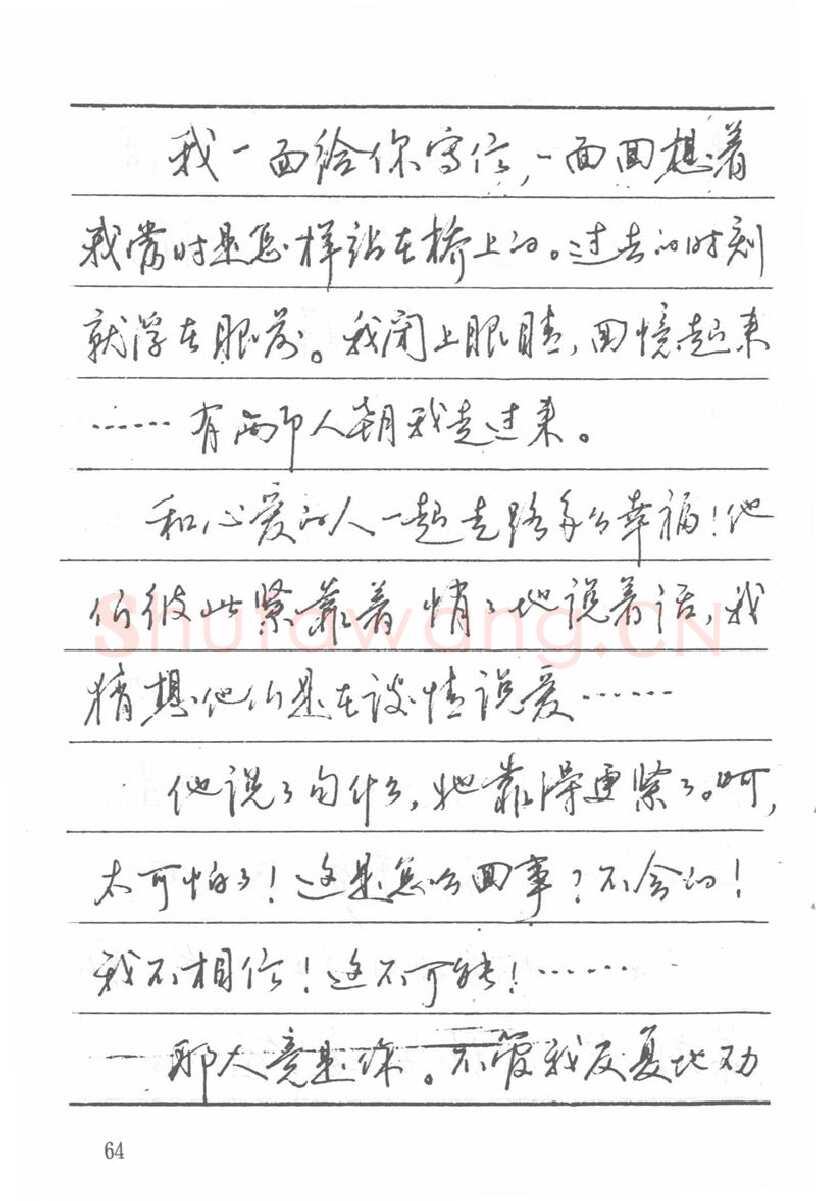 我一面给你写信，一面回想着
我当时是怎样站在桥上的。过去的时刻
就浮在眼前。我闭上眼睛，回忆起来
……有两个人朝我走过来。
和心爱的人一起走路多么幸福！他
们彼此紧靠着悄悄地说着话，我
猜想他们是在谈情说爱……
他说了句什么，她靠得更紧了。呵，
太可怕了！这是怎么回事？不会的！
我不相信！这不可能！……
那人竟是你。不管我反复地劝
Shufawang.CN
64